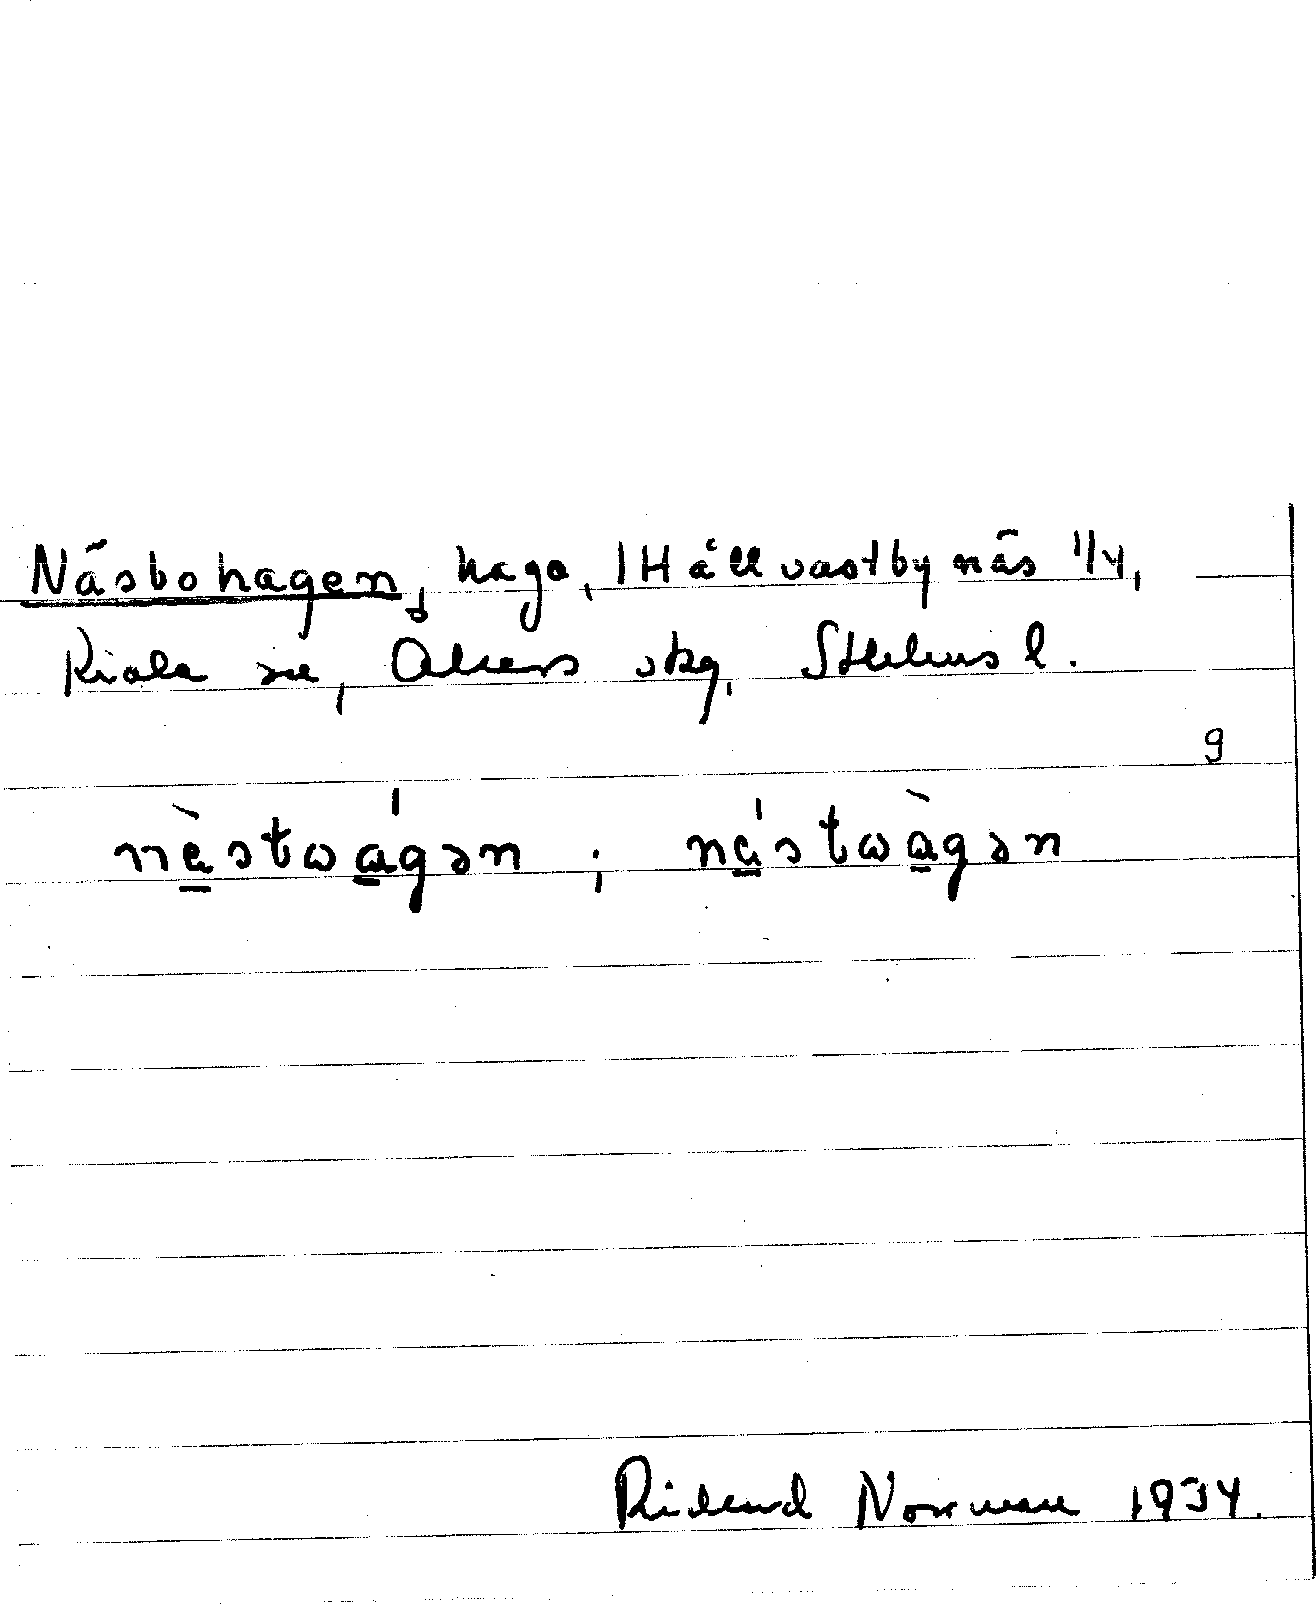 Näsbohagen, hage, 1 Hällvastbynäs 1/4,
Riala sn, Åkers skg, Sthlms l.
9
nästwagən ; nástwàgən
Richard Norrman 1934.